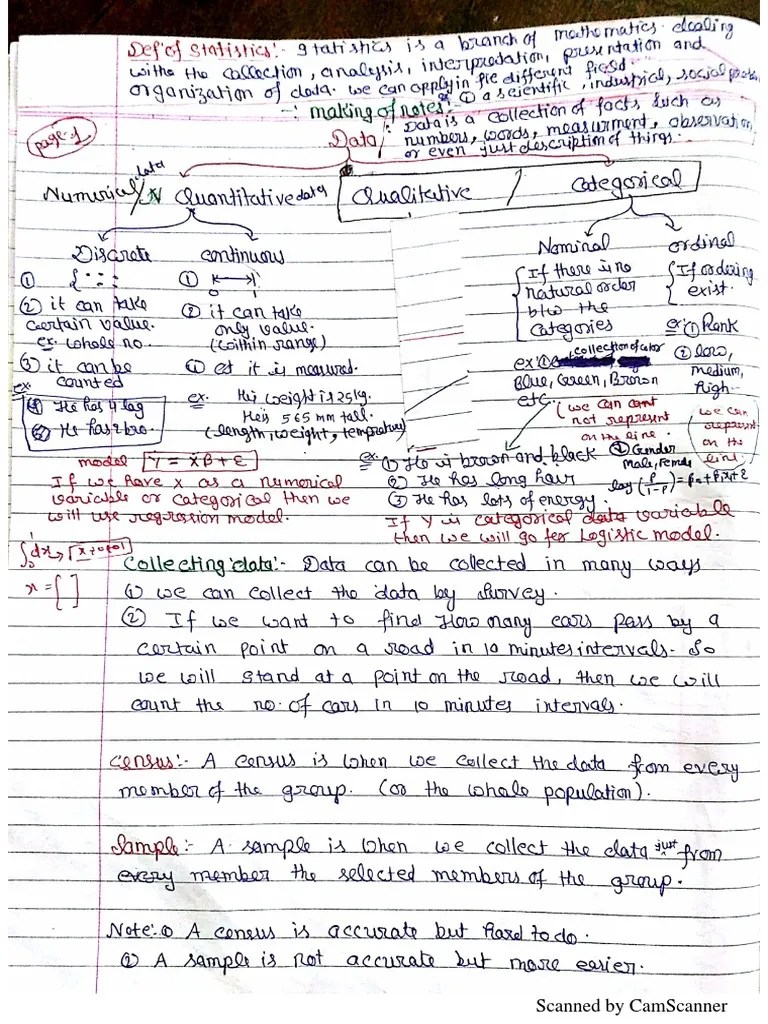 Def of Statistics:- Statistics is a branch of mathematics dealing
withe the collection, analysis, interpretation, presentation and
organization of data. we can apply in five different field.
① a scientific, industrial, social
-: making of notes:
page-1
Data : Data is a collection of facts such as
numbers, words, measurment, observation
or even just description of things.
Numerical data / Quantitative data
Qualitative / Categorical
Discrate
① { : : :
② it can take
certain value.
ex. whole no.
③ it can be
counted
ex.
① He has 4 leg
② He has 2 bro.
continuous
①
0 1
② it can take
only value.
(within range)
① et it is measured.
ex. His weight is 25 kg.
He is 565 mm tall.
(length, weight, temprature)
Nominal
If there is no
natural order
b/w the
categories
ex ① collection of color
Blue, Green, Brown
etc.
(we can cant
not represent
on the line.
② Gender
Male, Female
ordinal
If ordering
exist.
ex: ① Rank
② low,
medium,
high.
we can
represent
on the
line.
ex. ① He is brown and black
② He has long hair
③ He has lots of energy.
log (P/1-P) = β0 + β1x1 + ε
If Y is categorical data variable
then we will go for Logistic model.
model Y = Xβ + ε
If we have x as a numerical
variable or categorical then we
will use regression model.
x = [ ]
Collecting data:- Data can be collected in many ways
① we can collect the data by survey.
② If we want to find How many cars pass by a
certain point on a road in 10 minutes intervals. So
we will stand at a point on the road, then we will
count the no. of cars in 10 minutes intervals.
Census:- A census is when we collect the data from every
member of the group. (or the whole population).
Sample:- A sample is when we collect the data just from
every member the selected members of the group.
Note:- ① A census is accurate but hard to do.
② A sample is not accurate but more easier.
Scanned by CamScanner